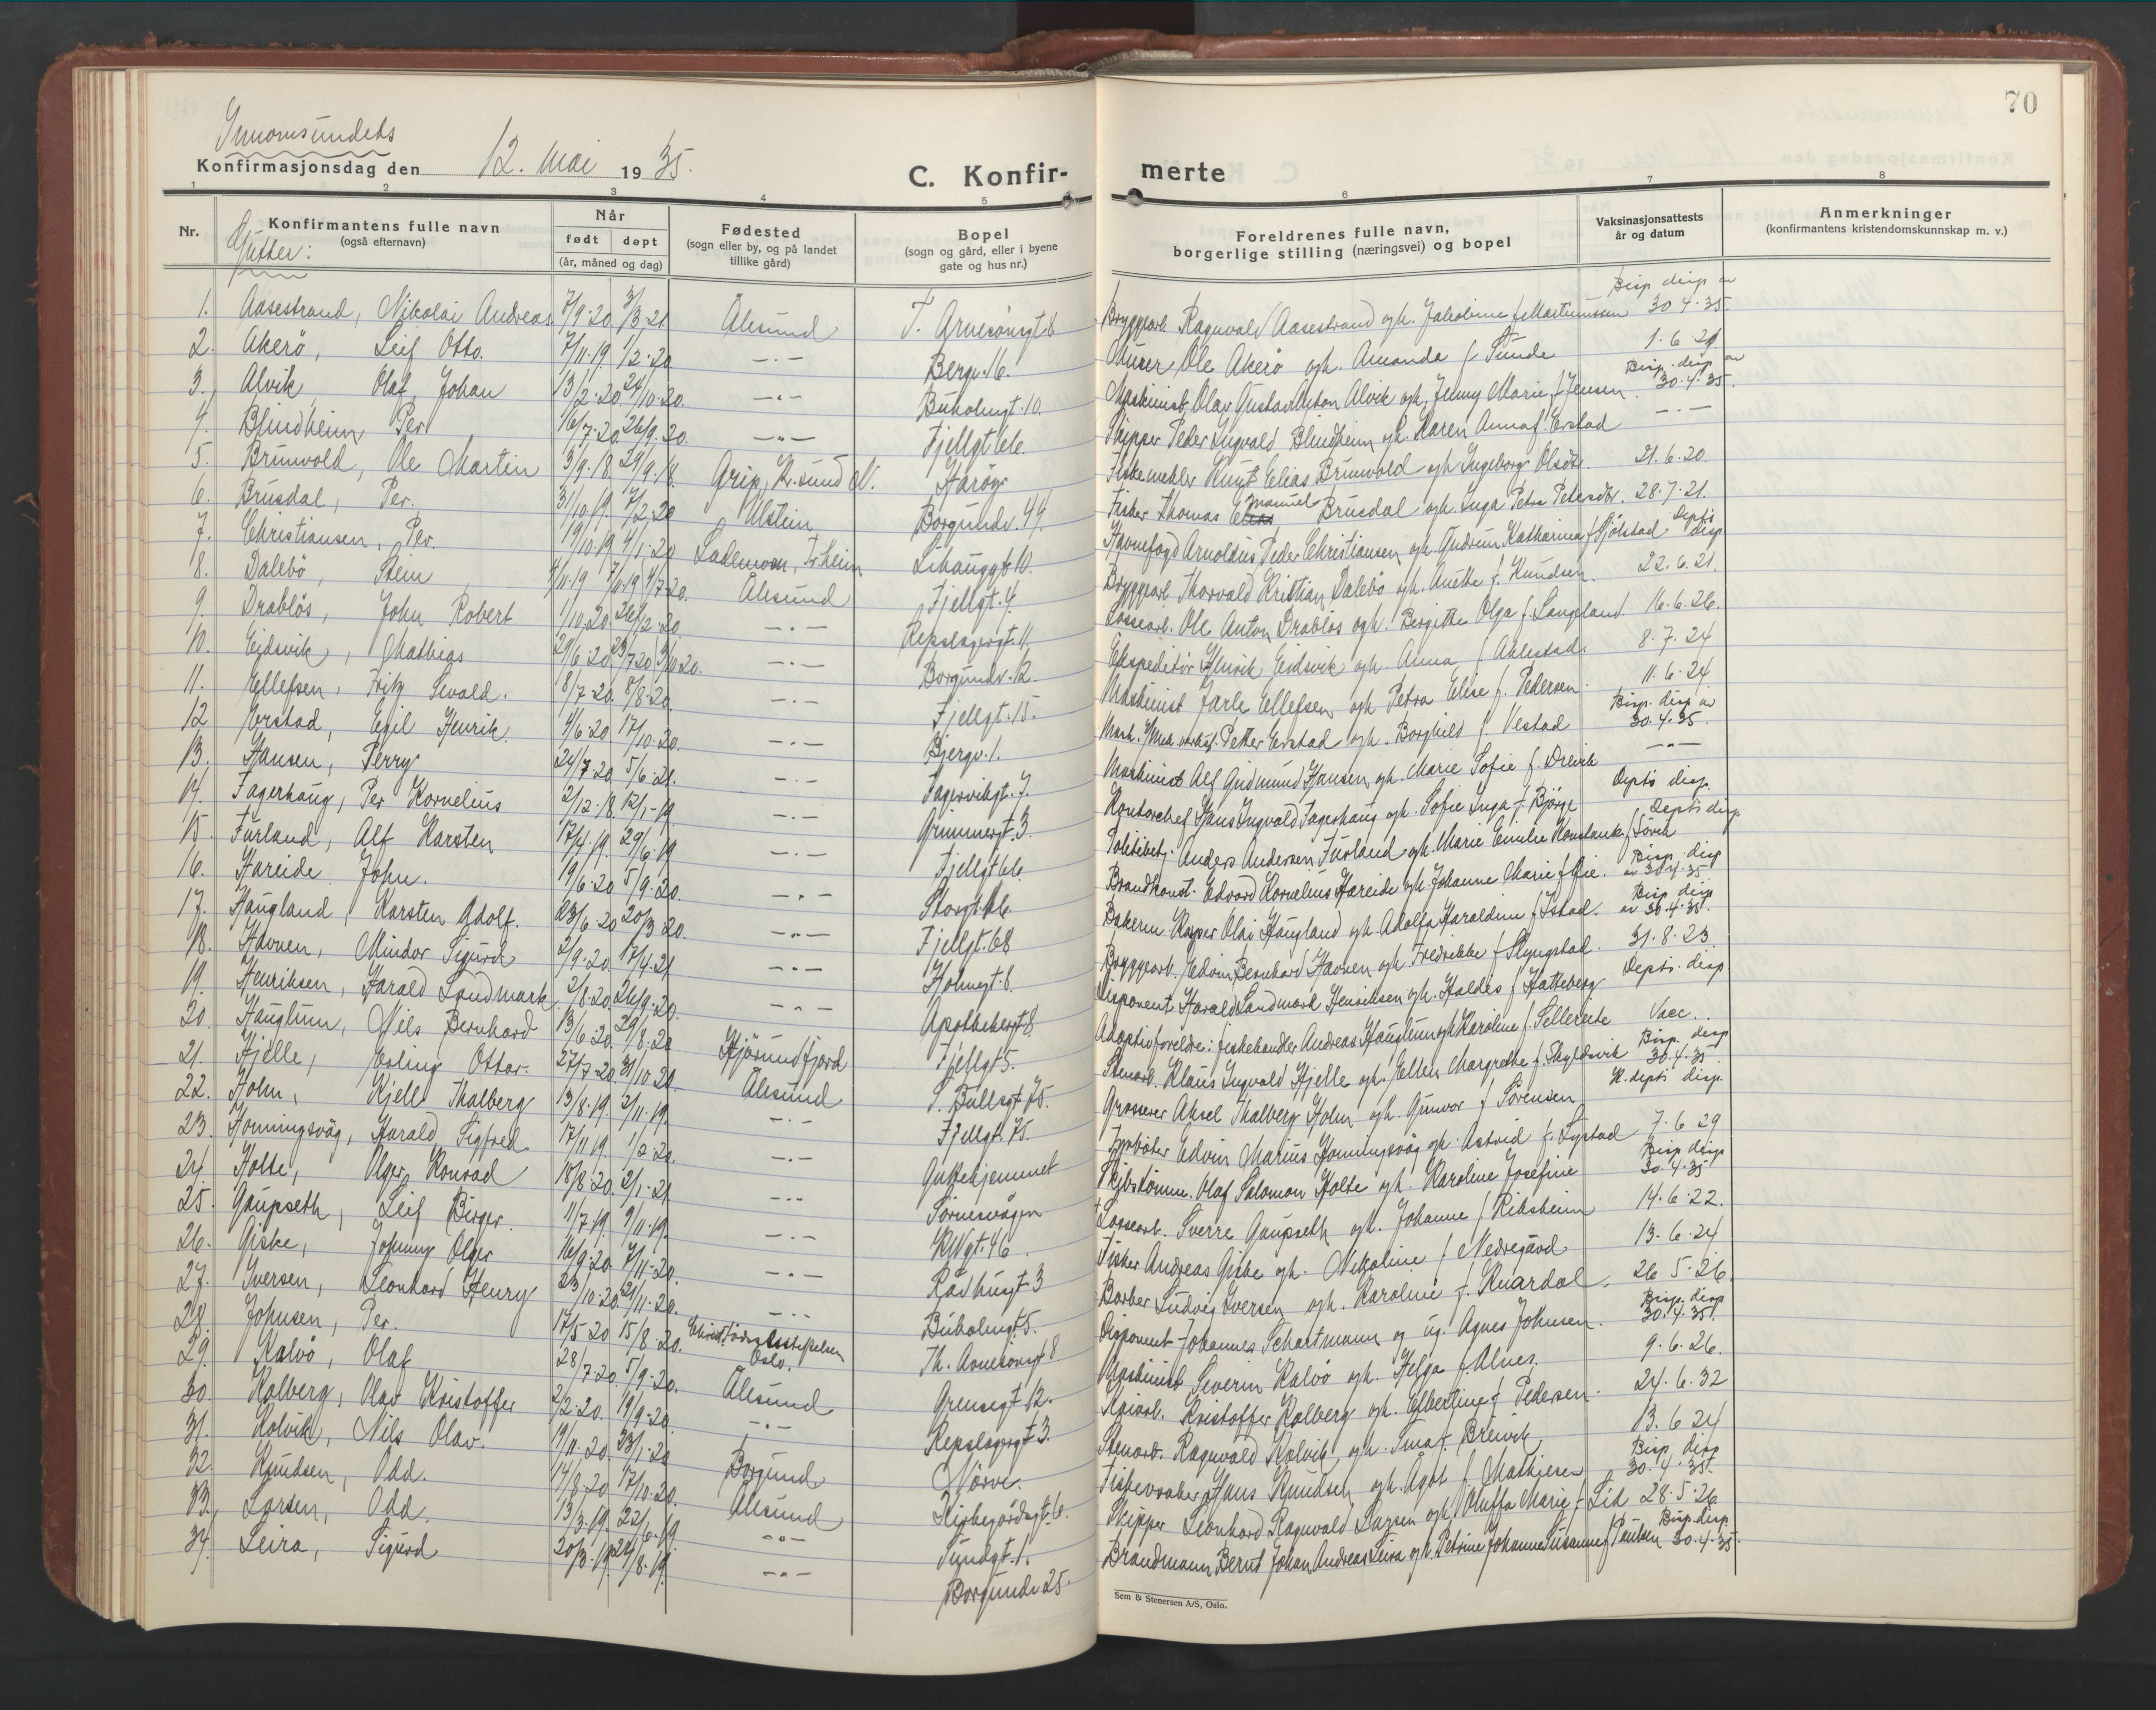 70
Innomsundets
Konfirmasjonsdag den 12. mai 1935.
C. Konfir-
merte
1 2 3 4 5 6 7 8
Nr.
Konfirmantens fulle navn
(også efternavn)
Gutter:
Når
født døpt
(år, måned og dag)
Fødested
(sogn eller by, og på landet
tillike gård)
Bopel
(sogn og gård, eller i byene
gate og hus nr.)
Foreldrenes fulle navn,
borgerlige stilling (næringsvei) og bopel
Vaksinasjonsattests
år og datum
Anmerkninger
(konfirmantens kristendomskunnskap m. v.)
1. Aasestrand, Nikolai Andreas 7/9-20 3/3-21 Ålesund T. Arnesönsgt 8 Bryggearb. Ragnvald Aasestrand og h. Jakobine f. Martinussen Bisp. disp. av 30-4-35.
2. Akerö, Leif Otto. 7/11-19 1/2-20 -"- Bergv. 16. Murer Ole Akerö og h. Amanda f. Sunde 1-6-21
3. Alvik, Olaf Johan 13/2-20. 24/10-20. -"- Buholmgt. 10. Maskinist Olav Gustav Anton Alvik og h. Jenny Marie f. Jensen. Bisp. disp. av 30-4-35.
4. Blindheim, Per 16/7-20. 26/9-20. -"- Fjellgt. 66. Skipper Peder Ingvald Blindheim og h. Karen Anna f. Erstad -"-
5. Brunvold, Ole Martin 3/9-18 29/9-18. Grip, Kr.sund N. Harög. Fiskemekler Knut Elias Brunvold og h. Ingeborg Olsdtr. 21-6-20.
6. Brusdal, Per. 31/10-19. 17/2-20 Ulstein Borgundv. 44. Fisker Thomas Emanuel Brusdal og h. Inga Petra Petersdtr. 28-7-21.
7. Christiansen, Per. 19/10-19 4/1-20 Lademoen, Tr.heim Lihauggt 10. Havnefogd Arnoldus Peder Christiansen og h. Gudrun Katharina f. Sjölstad Dept's disp.
8. Dalebö, Stein 4/11-19 4/7-20. Ålesund Fjellgt. 4. Bryggearb. Thorvald Kristian Dalebö og h. Anette f. Knudsen. 22-6-21.
9. Drablös, John Robert 1/10-20 26/12-20. -"- Repslagergt. 11. Lossearb. Ole Anton Drablös og h. Bergitte Olga f. Langeland 16-6-26.
10. Eidsvik, Mathias 29/6-20 3/10-20. -"- Borgundv. 12. Ekspeditör Henrik Eidsvik og h. Anna f. Aklestad. 8-7-24
11. Ellefsen, Fritz Sevald. 18/7-20. 8/8-20. -"- Fjellgt. 15. Maskinist Jarle Ellefsen og h. Petra Elise f. Pedersen. 11-6-24
12 Erstad, Egil Henrik. 4/6-20 17/10-20. -"- Bjergv. 1. Petter Erstad og h. Borghild f. Vestad Bisp. disp. av 30-4-35.
13. Hansen, Perry 24/7-20 5/6-21. -"- Fagervikgt. 7. Maskinist Alf Gudmund Hansen og h. Marie Sofie f. Dreivik -"-
14. Fagerhaug, Per Kornelius 2/12-18. 12/1-19 -"- Grimmergt. 3. Kontorchef Hans Ingvald Fagerhaug og h. Sofie Inga f. Björge Dept's disp.
15. Furland, Alf Karsten 17/4-19. 29/6-19 -"- Fjellgt 66. Politibetj. Anders Andersen Furland og h. Marie Emilie Konstanse f. Lövik Dept's disp
16. Hareide John. 19/6-20 5/9-20. -"- Storgt. 16. Brandkonst. Edvard Kornelius Hareide og h. Johanne Marie f. Gie. Bisp. disp av 30-4-35.
17. Haugland, Karsten Adolf. 23/6-20 20/3-20. -"- Fjellgt. 68 Bokerm. Kasper Olai Haugland og h. Adolfa Haraldine f. Istad. Bisp. disp av 30-4-35.
18. Havnen, Mindor Sigurd 2/9-20. 17/4-21 -"- Holmgt. 8. Bryggearb. Edvin Bernhard Havnen og h. Fredrikke f. Slyngstad. 31-8-23.
19. Henriksen, Harald Landmark 2/8-20. 26/9-20. -"- Apothekergt 8. Disponent Harald Landmark Henriksen og h. Haldis f. Hatteberg Dept's. disp
20. Hauglum, Nils Bernhard 13/6-20. 29/8-20 Hjörundfjord Fjellgt 5. Adoptivforeldre: fiskehandler Andreas Hauglum og h. Karoline f. Sellereite Vacc.
21. Hjelle, Erling Ottar. 27/7-20. 31/10-20. Ålesund S. Bullsgt 75. Stenarb. Klaus Ingvald Hjelle og h. Ellen Margrethe f. Bisp. disp 30-4-35.
22. Holm, Kjell Thalberg 13/8-19. 2/11-19. -"- Fjellgt. 75. Grosserer Aksel Thalberg Holm og h. Gunvor f. Sörensen K. dept's disp.
23. Honningsvåg, Harald Sigfred 17/11-19. 1/2-20. -"- Guttehjemmet Edvin Marius Honningsvåg og h. Astrid f. Systad 7-6 29
24. Holte, Olger Konrad 18/8-20. 2/1-21 -"- Sörnesvågen Skibstömm. Olaf Salomon Holte og h. Karoline Josefine Bisp. disp 30-4-35
25. Gaupseth, Leif Birger. 11/7-19. 9/11-19. -"- KWgt. 46. Lossearb. Sverre Gaupseth og h. Johanne f. Riksheim 14-6-22.
26. Giske, Johnny Olger 16/9-20. 7/11-20. -"- Rådhusgt. 3 Fisker Andreas Giske og h. Nikoline f. Nedregård 13-6-24
27. Iversen, Leonhard Henry 23/10-20. 21/11-20. -"- Buholmgt. 5. Barber Ludvig Iversen og h. Karoline f. Knardal. 26 5-26.
28. Johnsen, Per. 17/5-20 15/8-20. Oslo. Th. Arnesönsgt 8 Disponent Johannes Schartmann og ug. Agnes Johnsen. Bisp. disp 30-4-35.
29. Kalvö, Olaf 28/7-20. 5/9-20. Ålesund Grensegt 12. Maskinist Severin Kalvö og h. Helga f. Alnes. 9-6-26.
30. Kolberg, Olav Kristoffer 2/2-20. 19/9-20. -"- Repslagergt 3. Kaiarb. Kristoffer Kolberg og h. Elbertine f. Pedersen. 24-6-32
31. Kolvik, Nils Olav. 19/11-20. 23/1-20 Borgund Nörve. Stenarb. Ragnvald Kolvik og h. Breivik. 13-6 24
32. Knudsen, Odd. 14/8-20 17/10-20. Ålesund Kirkegårdsgt. 6. Fiskevraker Hans Knudsen og h. Agot f. Mathiesen Bisp. disp 30-4-35.
33. Larsen, Odd. 13/3-19. 22/6-19. -"- Sundgt. 1. Skipper Leonhard Ragnvald Larsen og h. Oluffa Marie f. Lid 28-5-26
34. Leira, Sigurd 20/3-19. 24/8-19. -"- Borgundv 25. Brandmann Bernt Johan Andreas Leira og h. Petrine Johanne Susanne f. Paulsen Bisp. disp. 30-4-35.
Sem & Stenersen A/S, Oslo.